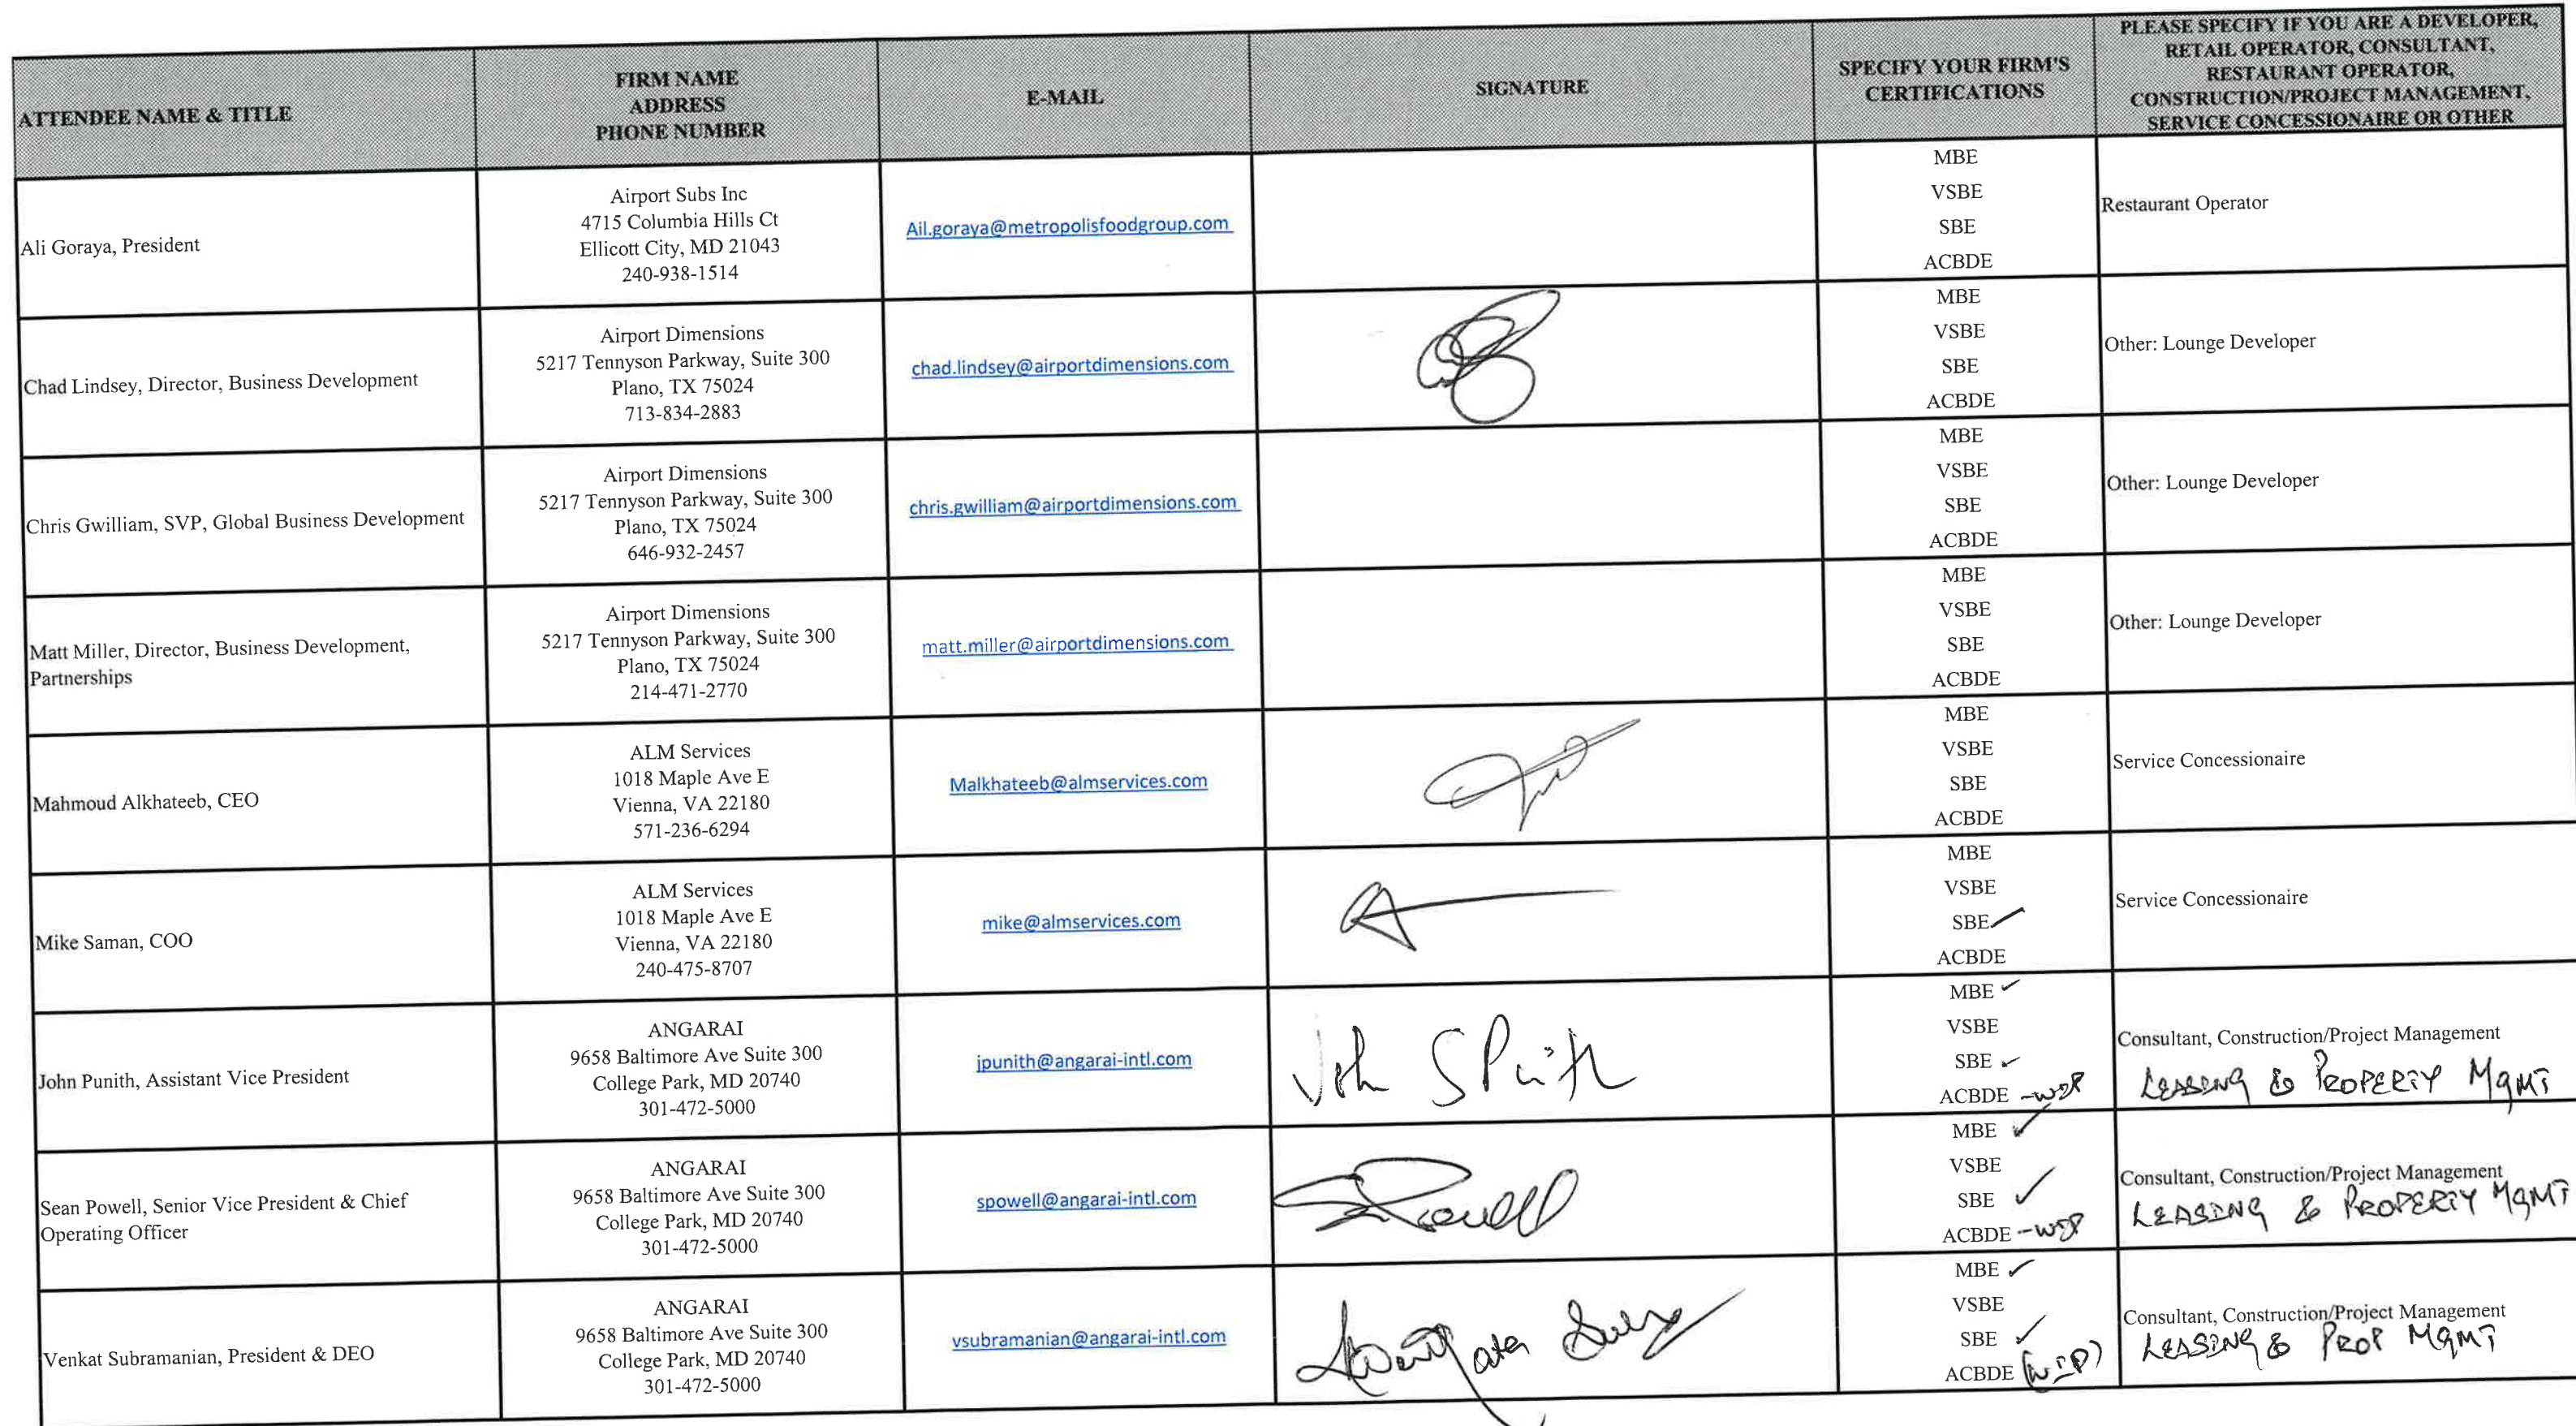 ATTENDEE NAME & TITLE
FIRM NAME
ADDRESS
PHONE NUMBER
E-MAIL
SIGNATURE
SPECIFY YOUR FIRM'S
CERTIFICATIONS
PLEASE SPECIFY IF YOU ARE A DEVELOPER,
RETAIL OPERATOR, CONSULTANT,
RESTAURANT OPERATOR,
CONSTRUCTION/PROJECT MANAGEMENT,
SERVICE CONCESSIONAIRE OR OTHER
Ali Goraya, President
Airport Subs Inc
4715 Columbia Hills Ct
Ellicott City, MD 21043
240-938-1514
Ail.goraya@metropolisfoodgroup.com
MBE
VSBE
SBE
ACBDE
Restaurant Operator
Chad Lindsey, Director, Business Development
Airport Dimensions
5217 Tennyson Parkway, Suite 300
Plano, TX 75024
713-834-2883
chad.lindsey@airportdimensions.com
MBE
VSBE
SBE
ACBDE
Other: Lounge Developer
Chris Gwilliam, SVP, Global Business Development
Airport Dimensions
5217 Tennyson Parkway, Suite 300
Plano, TX 75024
646-932-2457
chris.gwilliam@airportdimensions.com
MBE
VSBE
SBE
ACBDE
Other: Lounge Developer
Matt Miller, Director, Business Development,
Partnerships
Airport Dimensions
5217 Tennyson Parkway, Suite 300
Plano, TX 75024
214-471-2770
matt.miller@airportdimensions.com
MBE
VSBE
SBE
ACBDE
Other: Lounge Developer
Mahmoud Alkhateeb, CEO
ALM Services
1018 Maple Ave E
Vienna, VA 22180
571-236-6294
Malkhateeb@almservices.com
MBE
VSBE
SBE
ACBDE
Service Concessionaire
Mike Saman, COO
ALM Services
1018 Maple Ave E
Vienna, VA 22180
240-475-8707
mike@almservices.com
MBE
VSBE
SBE ✓
ACBDE
Service Concessionaire
John Punith, Assistant Vice President
ANGARAI
9658 Baltimore Ave Suite 300
College Park, MD 20740
301-472-5000
jpunith@angarai-intl.com
MBE ✓
VSBE
SBE ✓
ACBDE - WIP
Consultant, Construction/Project Management
LEASING & PROPERTY MGMT
Sean Powell, Senior Vice President & Chief
Operating Officer
ANGARAI
9658 Baltimore Ave Suite 300
College Park, MD 20740
301-472-5000
spowell@angarai-intl.com
MBE ✓
VSBE
SBE ✓
ACBDE - WIP
Consultant, Construction/Project Management
LEASING & PROPERTY MGMT
Venkat Subramanian, President & DEO
ANGARAI
9658 Baltimore Ave Suite 300
College Park, MD 20740
301-472-5000
vsubramanian@angarai-intl.com
MBE ✓
VSBE
SBE ✓
ACBDE (WIP)
Consultant, Construction/Project Management
LEASING & PROP MGMT